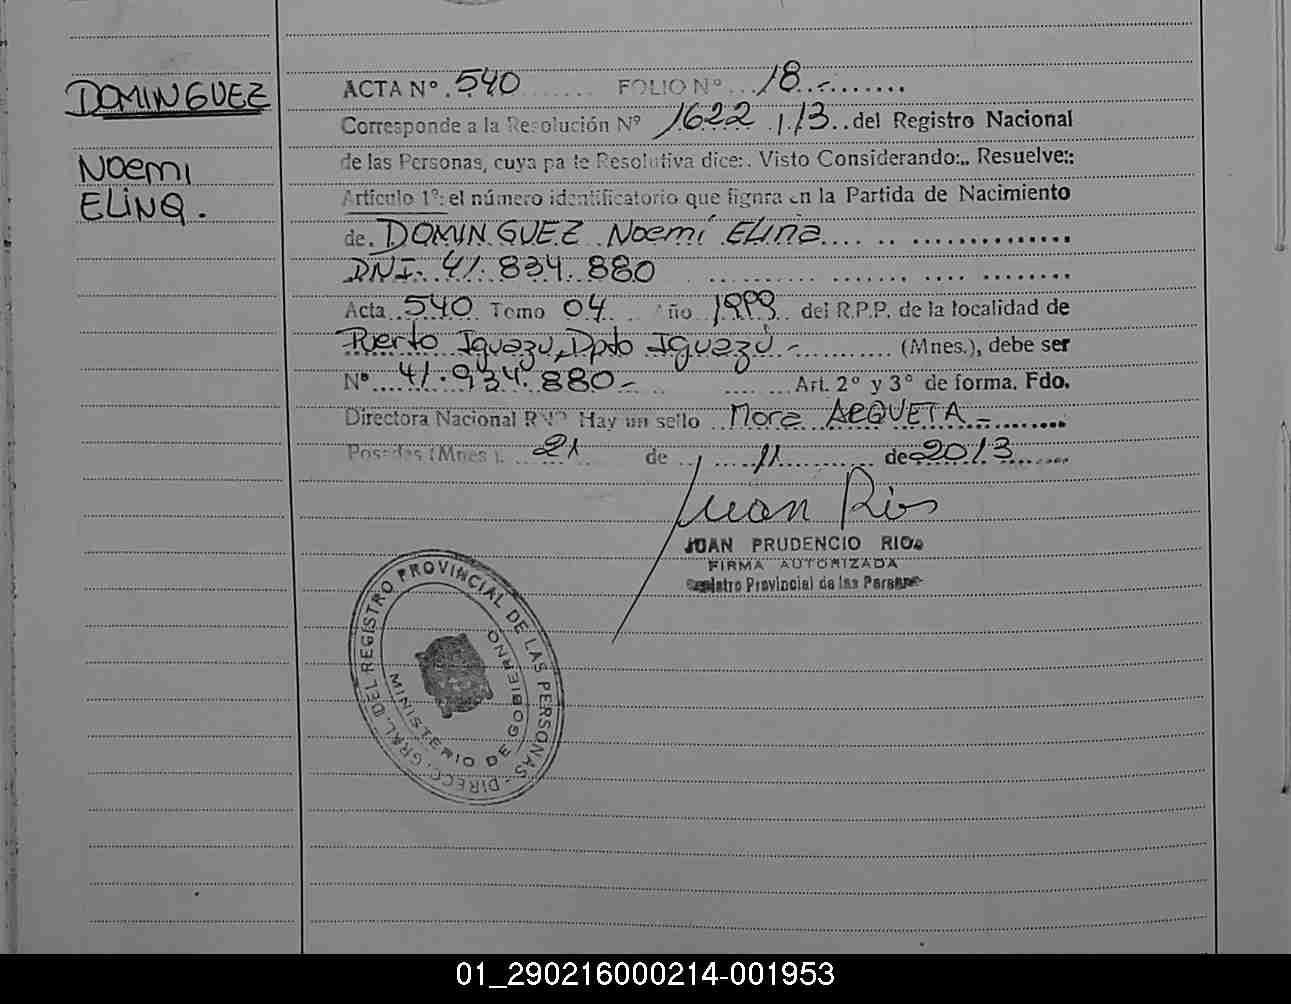 DOMINGUEZ
Noemi
ELINA.
ACTA Nº. 540 ....... FOLIO Nº ... 18.-.......
Corresponde a la Resolución Nº 1622 /13..del Registro Nacional
de las Personas, cuya parte Resolutiva dice:. Visto Considerando:.. Resuelve::
Artículo 1º: el número identificatorio que figura en la Partida de Nacimiento
de. DOMINGUEZ Noemí Elina.... .. ..............
DNI. 41. 834. 880 .......... ....... .... ........
Acta..540 Tomo 04. Año 1999 del R.P.P. de la localidad de
Puerto Iguazu, Dpto Iguazú.- .......... (Mnes.), debe ser
Nº....41.934.880- .. ........ Art. 2º y 3º de forma. Fdo.
Directora Nacional RNP Hay un sello ..Mora ARQUETA-.........
Posadas (Mnes.). ...21.... de .. .....11........... de 2013.......
Juan Rios
JUAN PRUDENCIO RIOS
FIRMA AUTORIZADA
Registro Provincial de las Personas
DIRECC. GRAL. DEL REGISTRO PROVINCIAL DE LAS PERSONAS -
MINISTERIO DE GOBIERNO
01_290216000214-001953